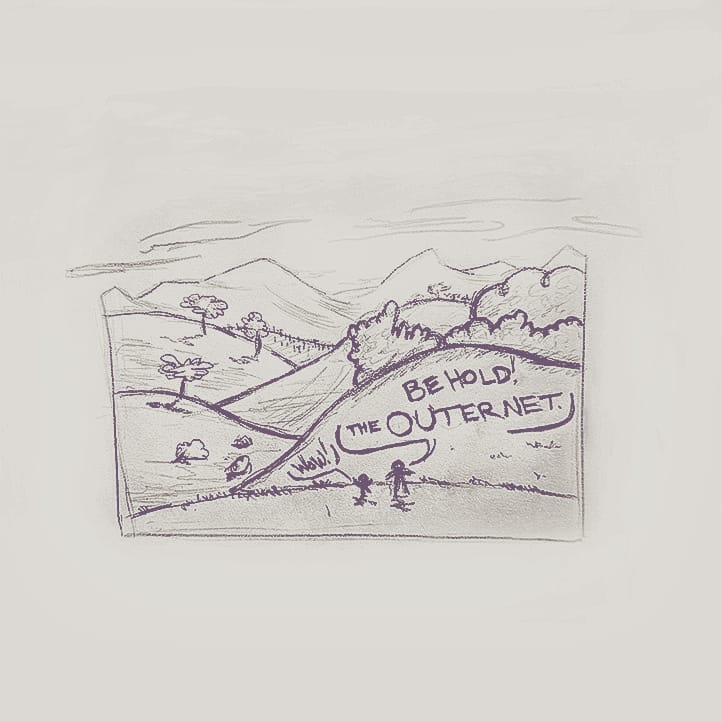 BEHOLD!
THE OUTERNET.
WOW!